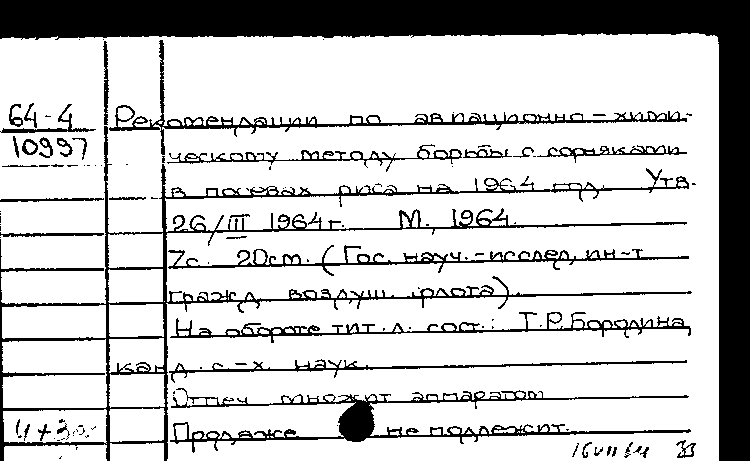 64-4 Рекомендации по авиационно-хими-
10997 ческому методу борьбы с сорняками
в посевах риса на 1964 год. Утв.
26/III 1964г. М., 1964.
7с. 20см. (Гос. науч.-исслед. ин-т
гражд. воздуш. флота).
На обороте тит. л. сост.: Т.Р. Бородина,
канд. с.-х. наук.
Отпеч множит аппаратом
Продаже не подлежит.